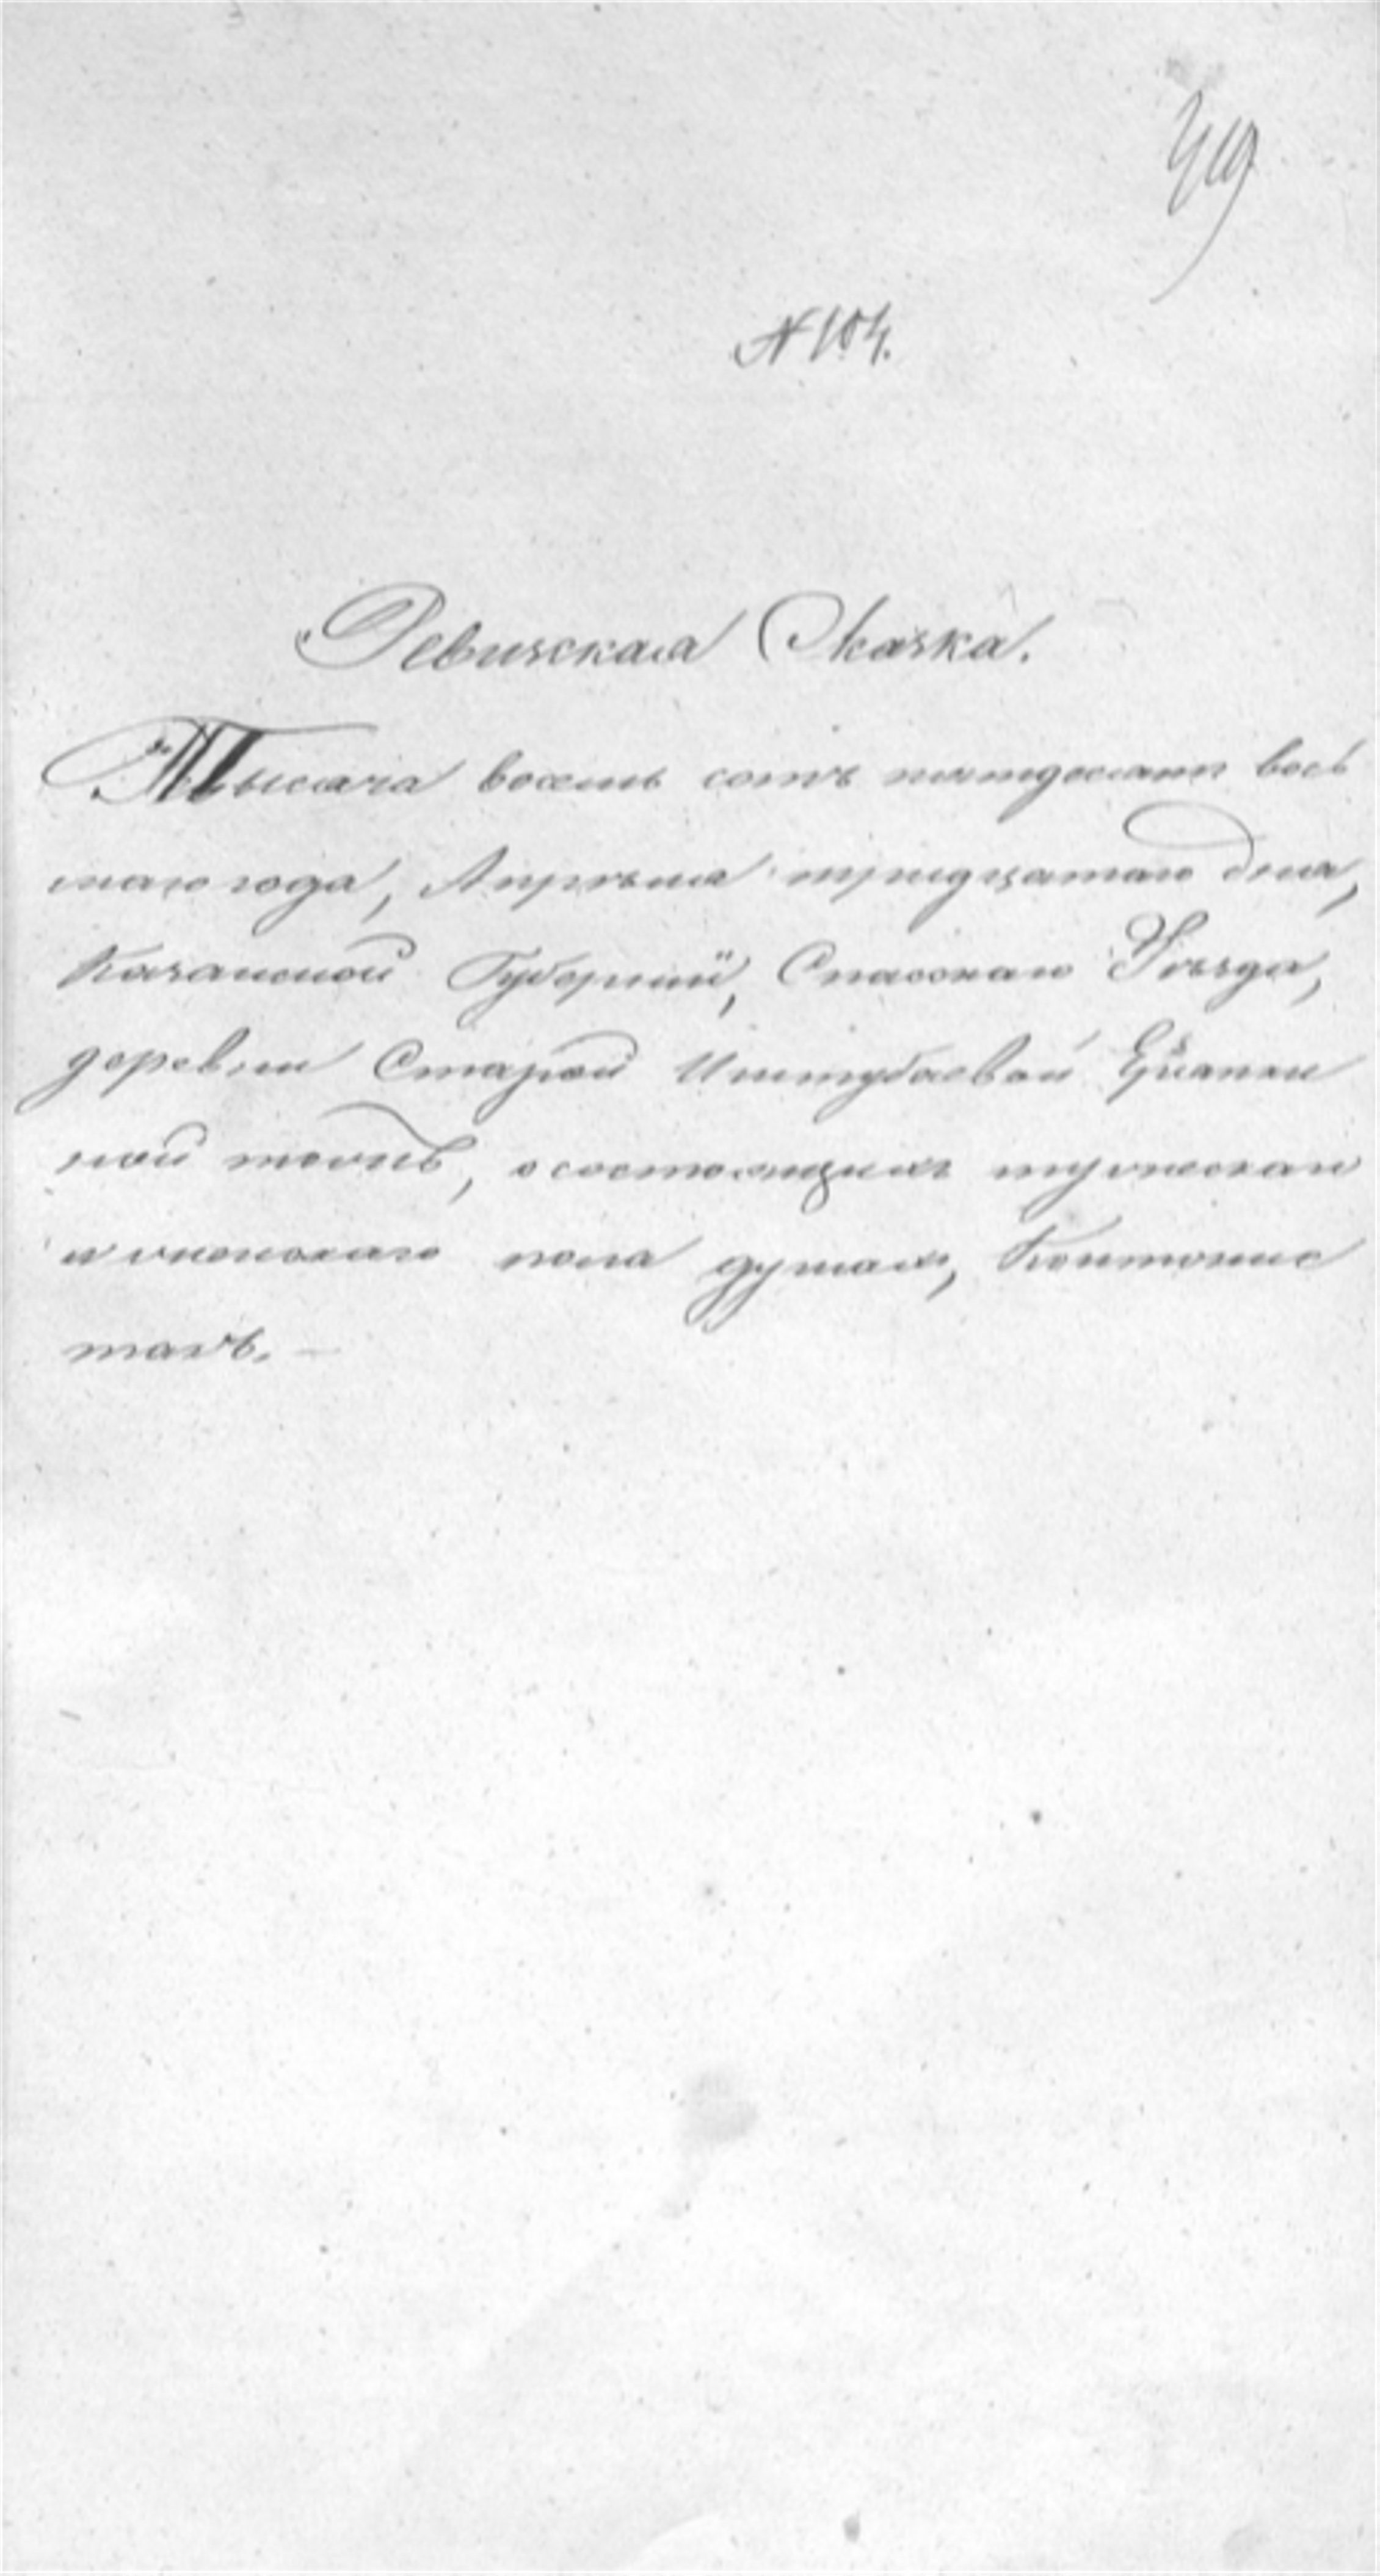 419
№ 104.
Ревизская Сказка.
Тысяча восемь сотъ пятдесятъ вось
маго года, Апрѣля тридцатаго дня,
Казанской Губерніи, Спасскаго Уѣзда,
деревни Старой Иштубаевой
тожъ, о состоящихъ мужескаго
и женскаго пола душахъ, Кантонис
тахъ. —